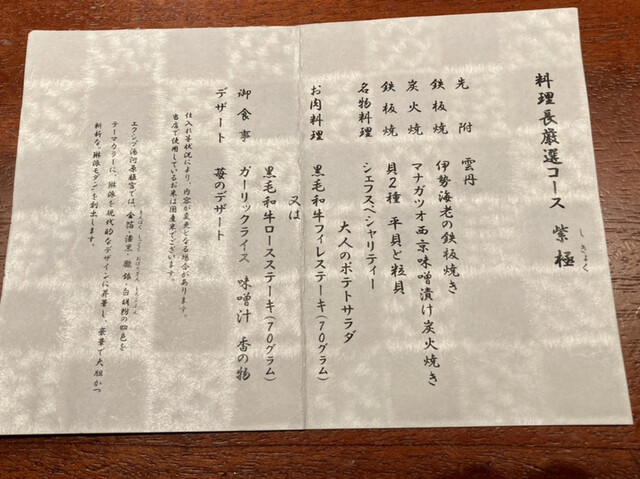 料理長厳選コース 紫極
しきょく
先附 雲丹
鉄板焼 伊勢海老の鉄板焼き
炭火焼 マナガツオ西京味噌漬け炭火焼き
鉄板焼 貝2種 平貝と粒貝
名物料理 シェフスペシャリティー
大人のポテトサラダ
お肉料理 黒毛和牛フィレステーキ(70グラム)
又は
黒毛和牛ロースステーキ(70グラム)
御食事 ガーリックライス 味噌汁 香の物
デザート 苺のデザート
仕入れ等状況により、内容が変更となる場合があります。
当店で使用しているお米は国産米でございます。
エクシブ湯河原離宮では、金箔・漆黒・朧銀・白胡粉の四色を
テーマカラーに、琳派を現代的なデザインに昇華し、豪華で大胆かつ
斬新な「琳派モダン」を創出します。